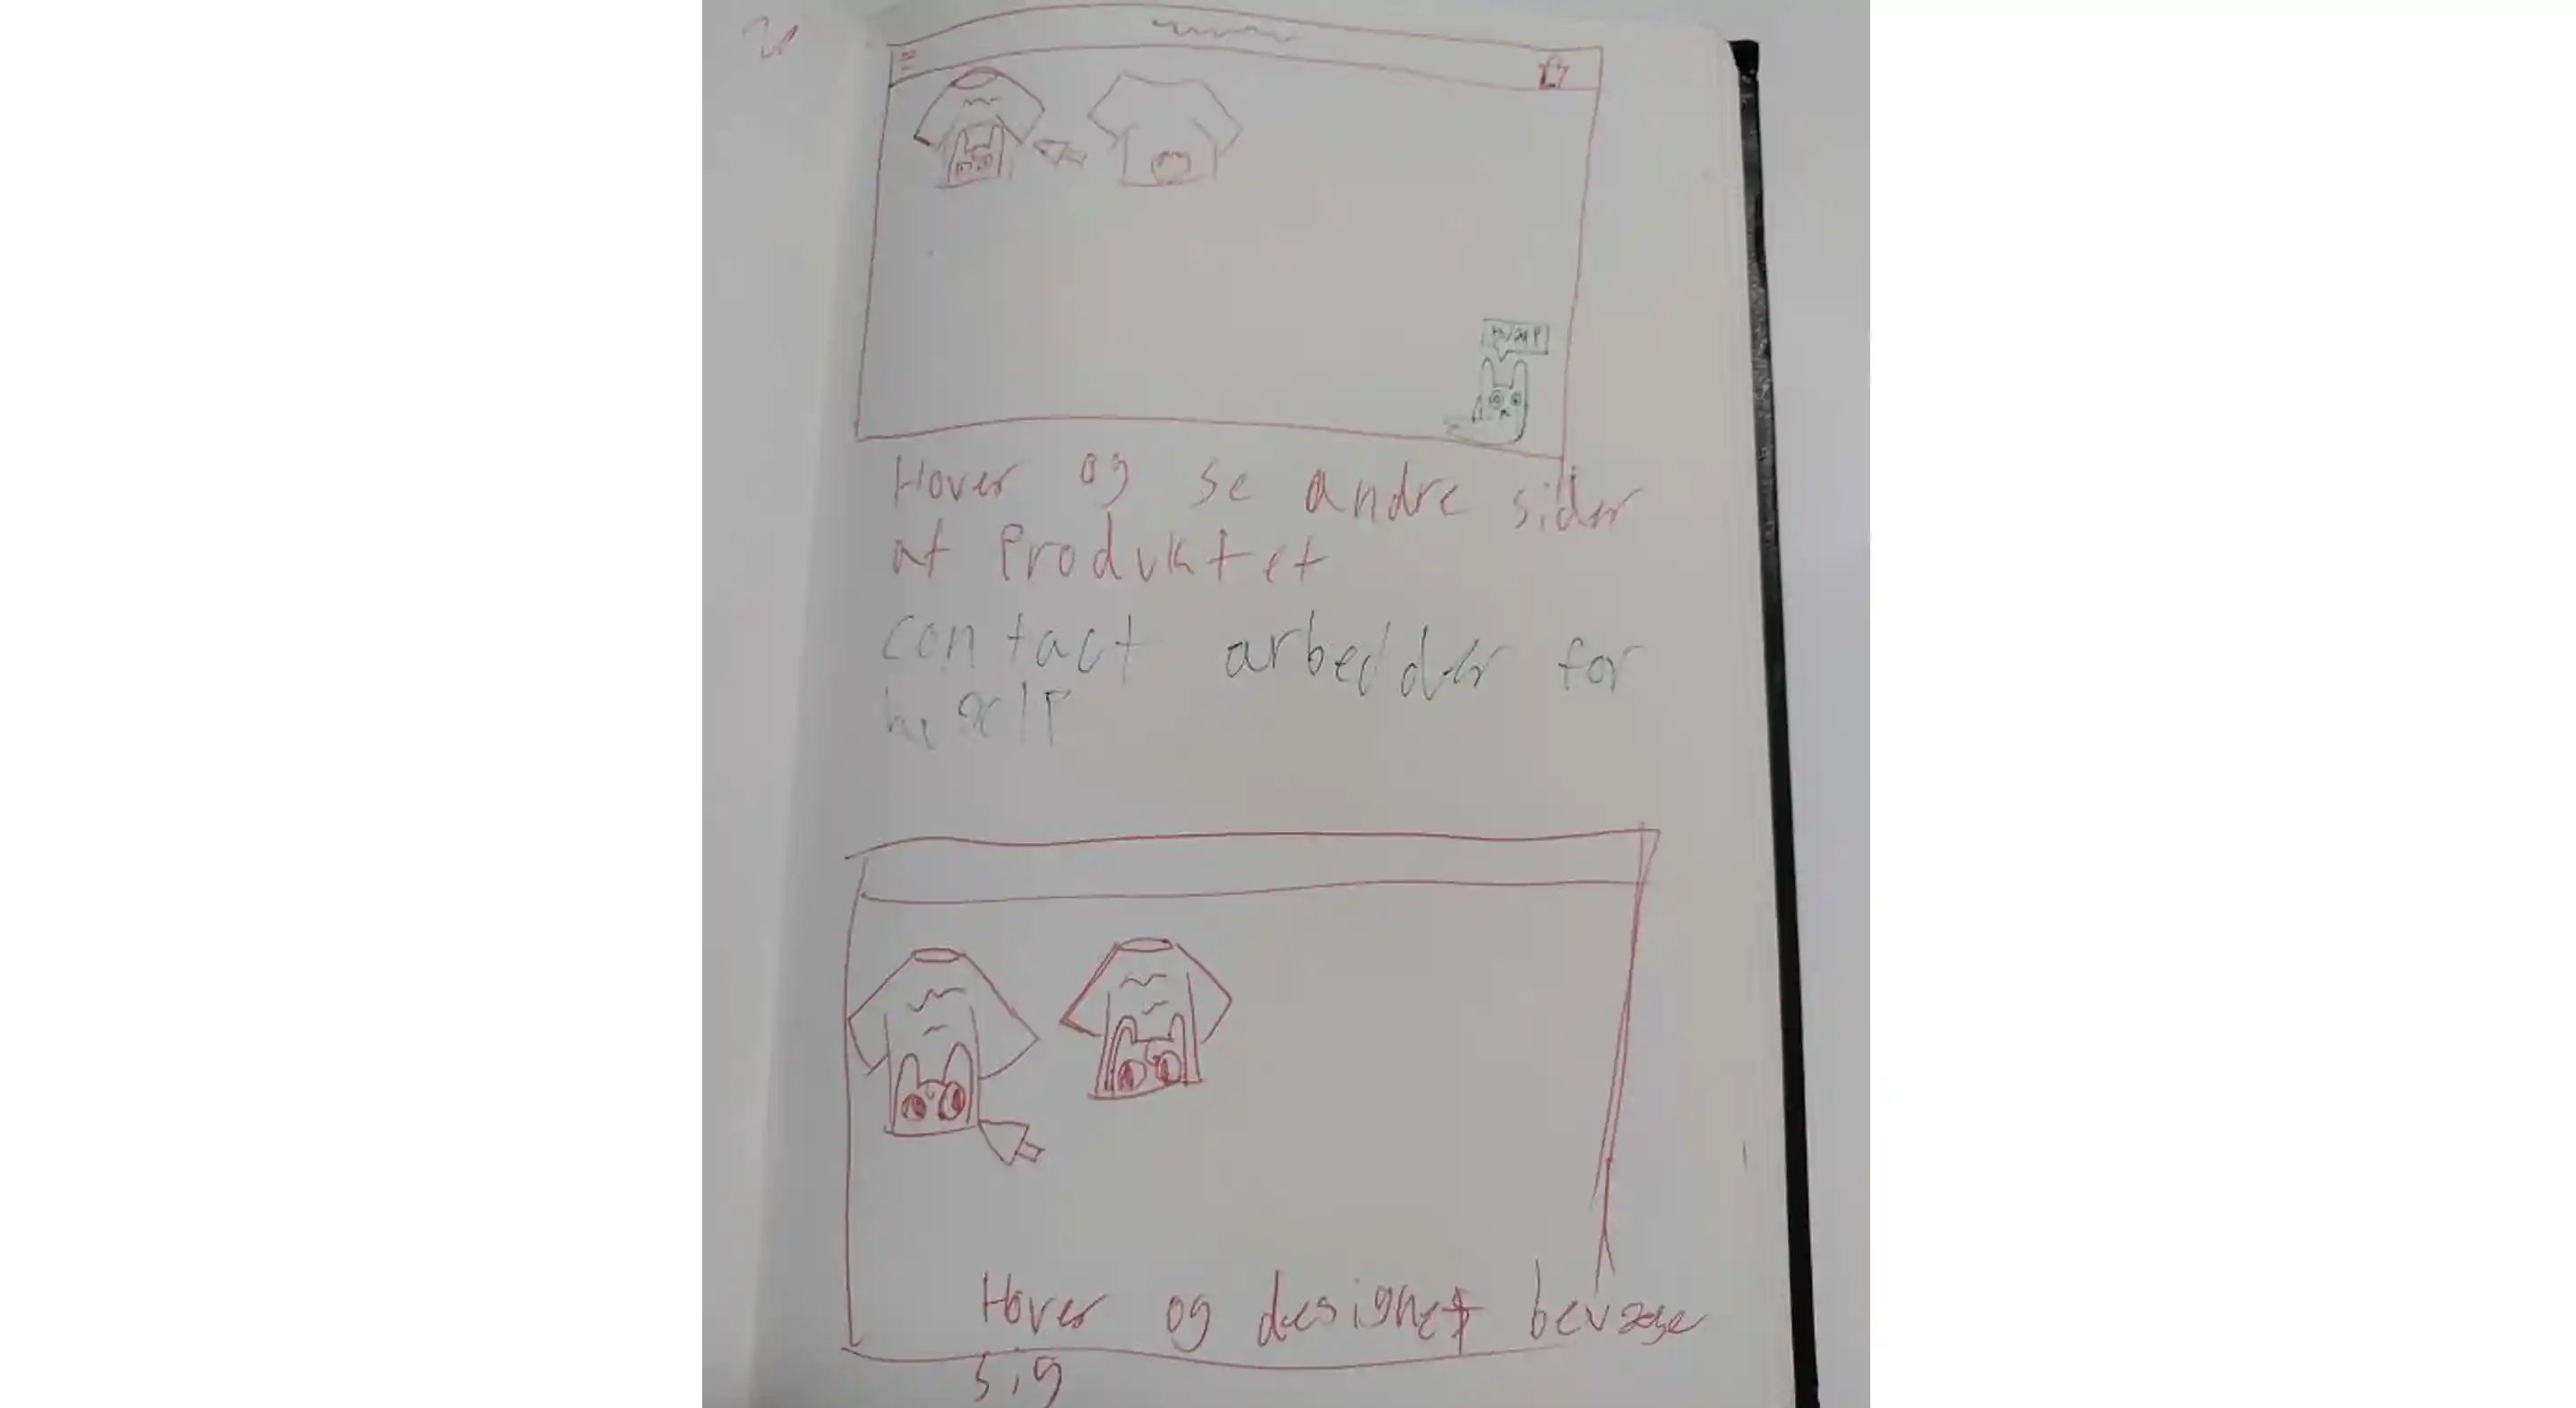 Hjælp
Hover og se andre sider
af Produktet
contact arbejder for
hjælp
Hover og designet bevæge
sig